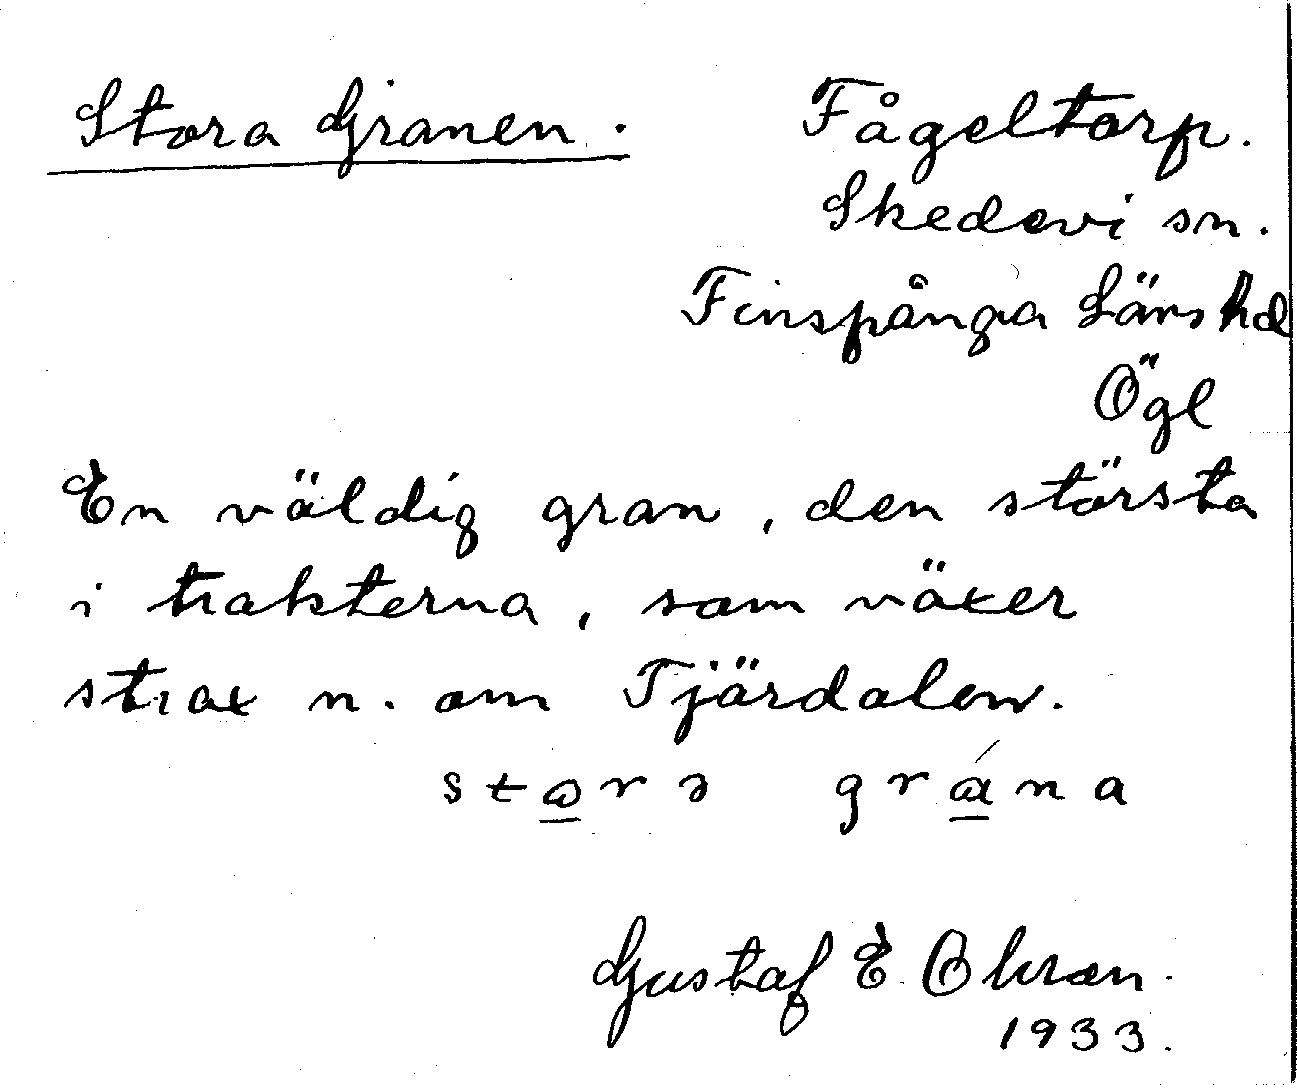 Stora Granen. Fågeltorp.
Skedevi sn.
Finspånga Läns hd
Ögl
En väldig gran, den största
i trakterna, som växer
strax n. om Tjärdalen.
stɷrɘ grána
Gustaf E. Ohrn.
1933.